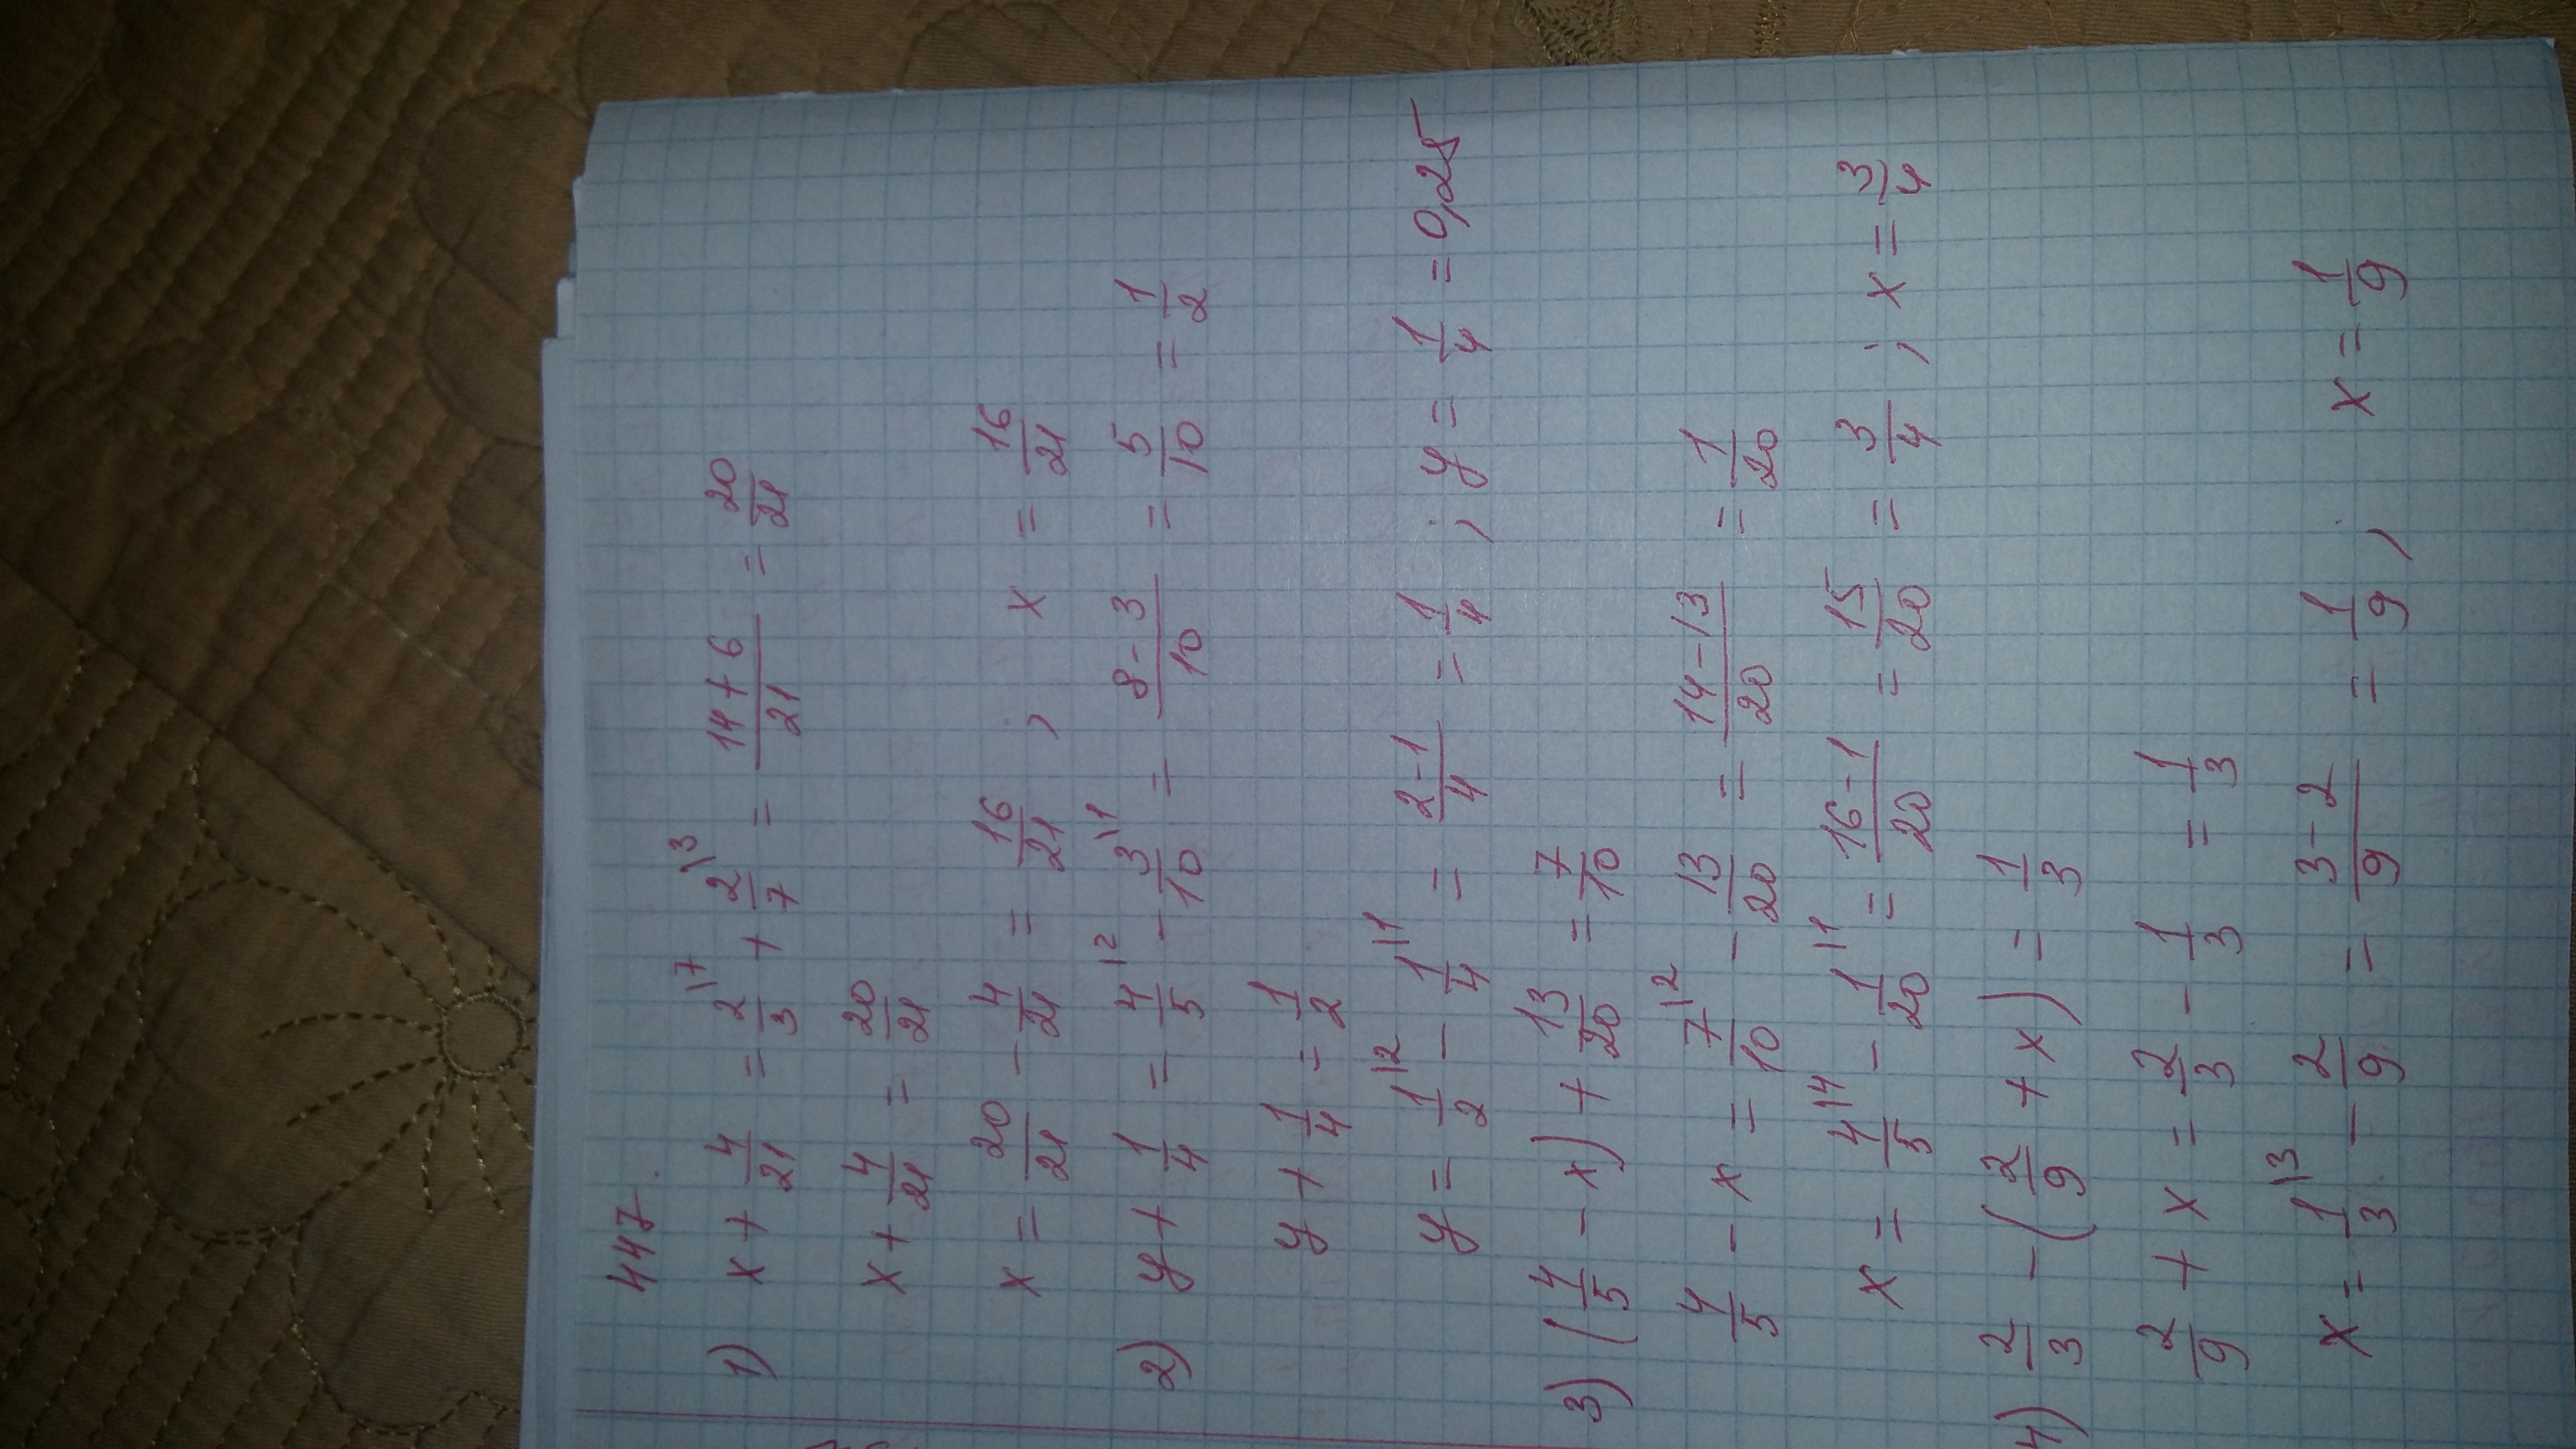 447.
1) x + 4/21 = 2/3 \7 + 2/7 \3 = (14+6)/21 = 20/21
x + 4/21 = 20/21
x = 20/21 - 4/21 = 16/21 ; x = 16/21
2) y + 1/4 = 4/5 \2 - 3/10 \1 = (8-3)/10 = 5/10 = 1/2
y + 1/4 = 1/2
y = 1/2 \2 - 1/4 \1 = (2-1)/4 = 1/4 ; y = 1/4 = 0,25
3) (4/5 - x) + 13/20 = 7/10
4/5 - x = 7/10 \2 - 13/20 = (14-13)/20 = 1/20
x = 4/5 \4 - 1/20 \1 = (16-1)/20 = 15/20 = 3/4 ; x = 3/4
4) 2/3 - (2/9 + x) = 1/3
2/9 + x = 2/3 - 1/3 = 1/3
x = 1/3 \3 - 2/9 = (3-2)/9 = 1/9 ; x = 1/9